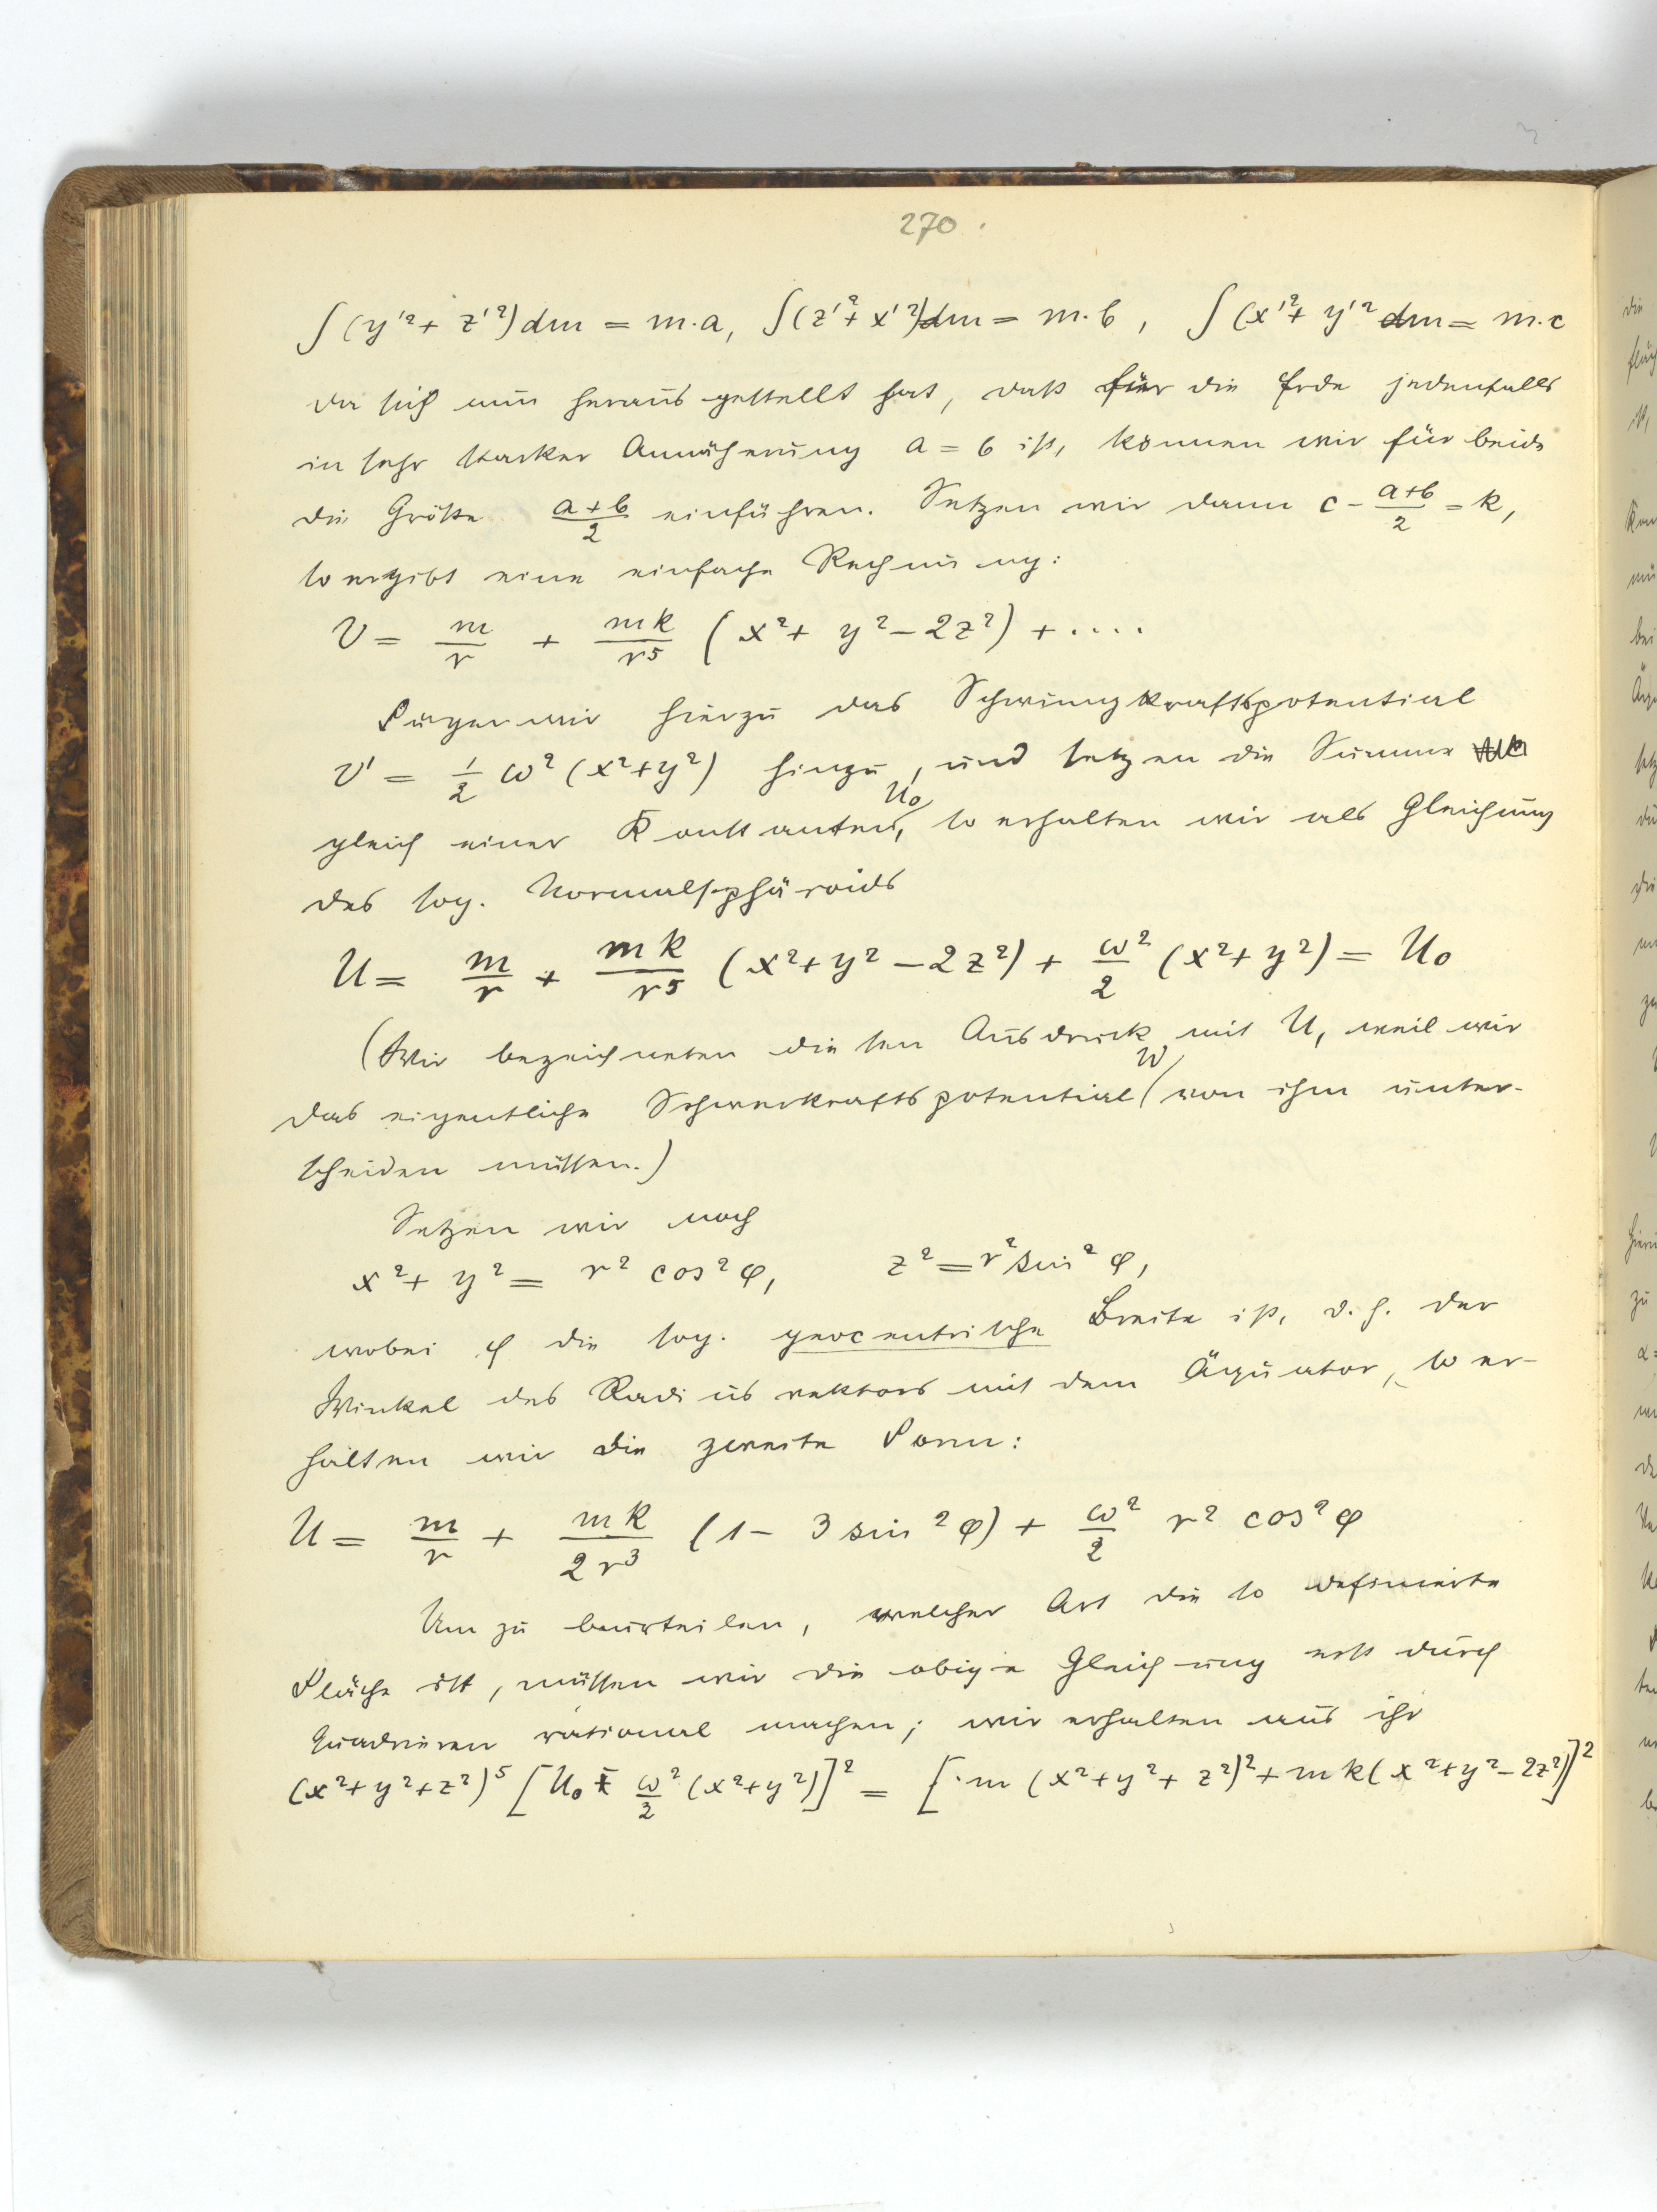 270.
∫(y'²+ z'²)dm = m.a, ∫(z'²+x'²)dm = m.b, ∫(x'²+y'² dm = m.c
Da sich nun herausgestellt hat, daß für die Erde jedenfalls
in sehr starker Annäherung a = b ist, können wir für beide
die Größe (a+b)/2 einführen. Setzen wir dann c - (a+b)/2 = k,
so ergibt eine einfache Rechnung:
V = m/r + mk/r⁵ (x²+ y²-2z²) + ....
Fügen wir hierzu das Schwungkraftspotential
V' = 1/2 ω² (x²+y²) hinzu, und setzen die Summe
gleich einer Konstanten U₀, so erhalten wir als Gleichung
des sog. Normalsphäroids
U = m/r + mk/r⁵ (x²+y²-2z²) + ω²/2 (x²+y²) = U₀
(Wir bezeichneten diesen Ausdruck mit U, weil wir
das eigentliche Schwerkraftspotential W von ihm unter-
scheiden müssen.)
Setzen wir noch
x²+ y² = r² cos²φ, z² = r² sin²φ,
wobei φ die sog. geocentrische Breite ist, d.h. der
Winkel des Radiusvektors mit dem Äquator, so er-
halten wir die zweite Form:
U = m/r + mk/2r³ (1- 3 sin²φ) + ω²/2 r² cos²φ
Um zu beurteilen, welcher Art die so definierte
Fläche ist, müssen wir die obige Gleichung erst durch
Quadrieren rational machen; wir erhalten aus ihr
(x²+y²+z²)⁵ [U₀ - ω²/2 (x²+y²)]² = [m (x²+y²+z²)²+mk(x²+y²-2z²)]²